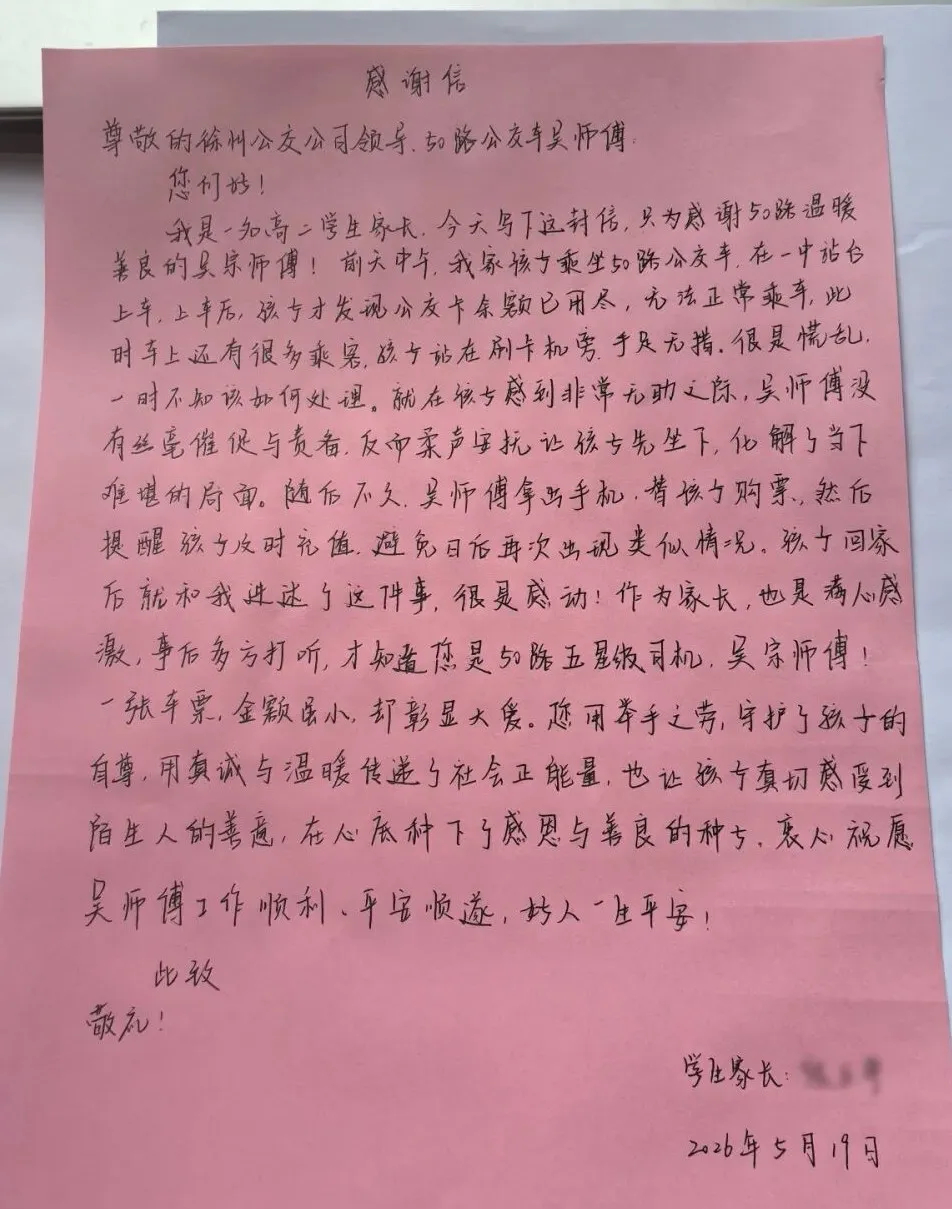 感谢信
尊敬的徐州公交公司领导、50路公交车吴师傅:
您们好!
我是一名高二学生家长,今天写下这封信,只为感谢50路温暖
善良的吴宗师傅!前天中午,我家孩子乘坐50路公交车,在一中站台
上车,上车后,孩子才发现公交卡余额已用尽,无法正常乘车,此
时车上还有很多乘客,孩子站在刷卡机旁,手足无措。很是慌乱,
一时不知该如何处理。就在孩子感到非常无助之际,吴师傅没
有丝毫催促与责备,反而柔声安抚让孩子先坐下,化解了当下
难堪的局面。随后不久,吴师傅拿出手机,替孩子购票,然后
提醒孩子及时充值,避免日后再次出现类似情况。孩子回家
后就和我讲述了这件事,很是感动!作为家长,也是满心感
激,事后多方打听,才知道您是50路五星级司机,吴宗师傅!
一张车票,金额虽小,却彰显大爱。您用举手之劳,守护了孩子的
自尊,用真诚与温暖传递了社会正能量,也让孩子真切感受到
陌生人的善意,在心底种下了感恩与善良的种子。衷心祝愿
吴师傅工作顺利、平安顺遂,好人一生平安!
此致
敬礼!
学生家长:
2026年5月19日